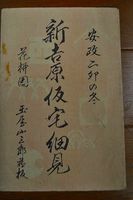 安政二卯の冬
新吉原仮宅細見
花街図
玉屋山三郎蔵板